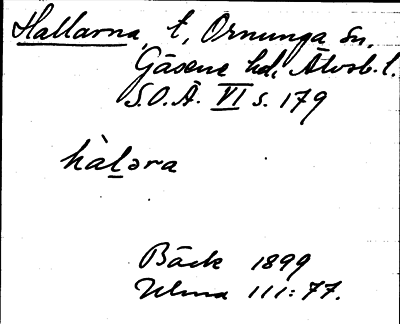 Hallarna, t., Ornunga sn,
Gäsene hd, Älvsb. l.
S.O.Ä. VI s. 179
hàl̲əra
Bäck 1899
Ulma 111:77.